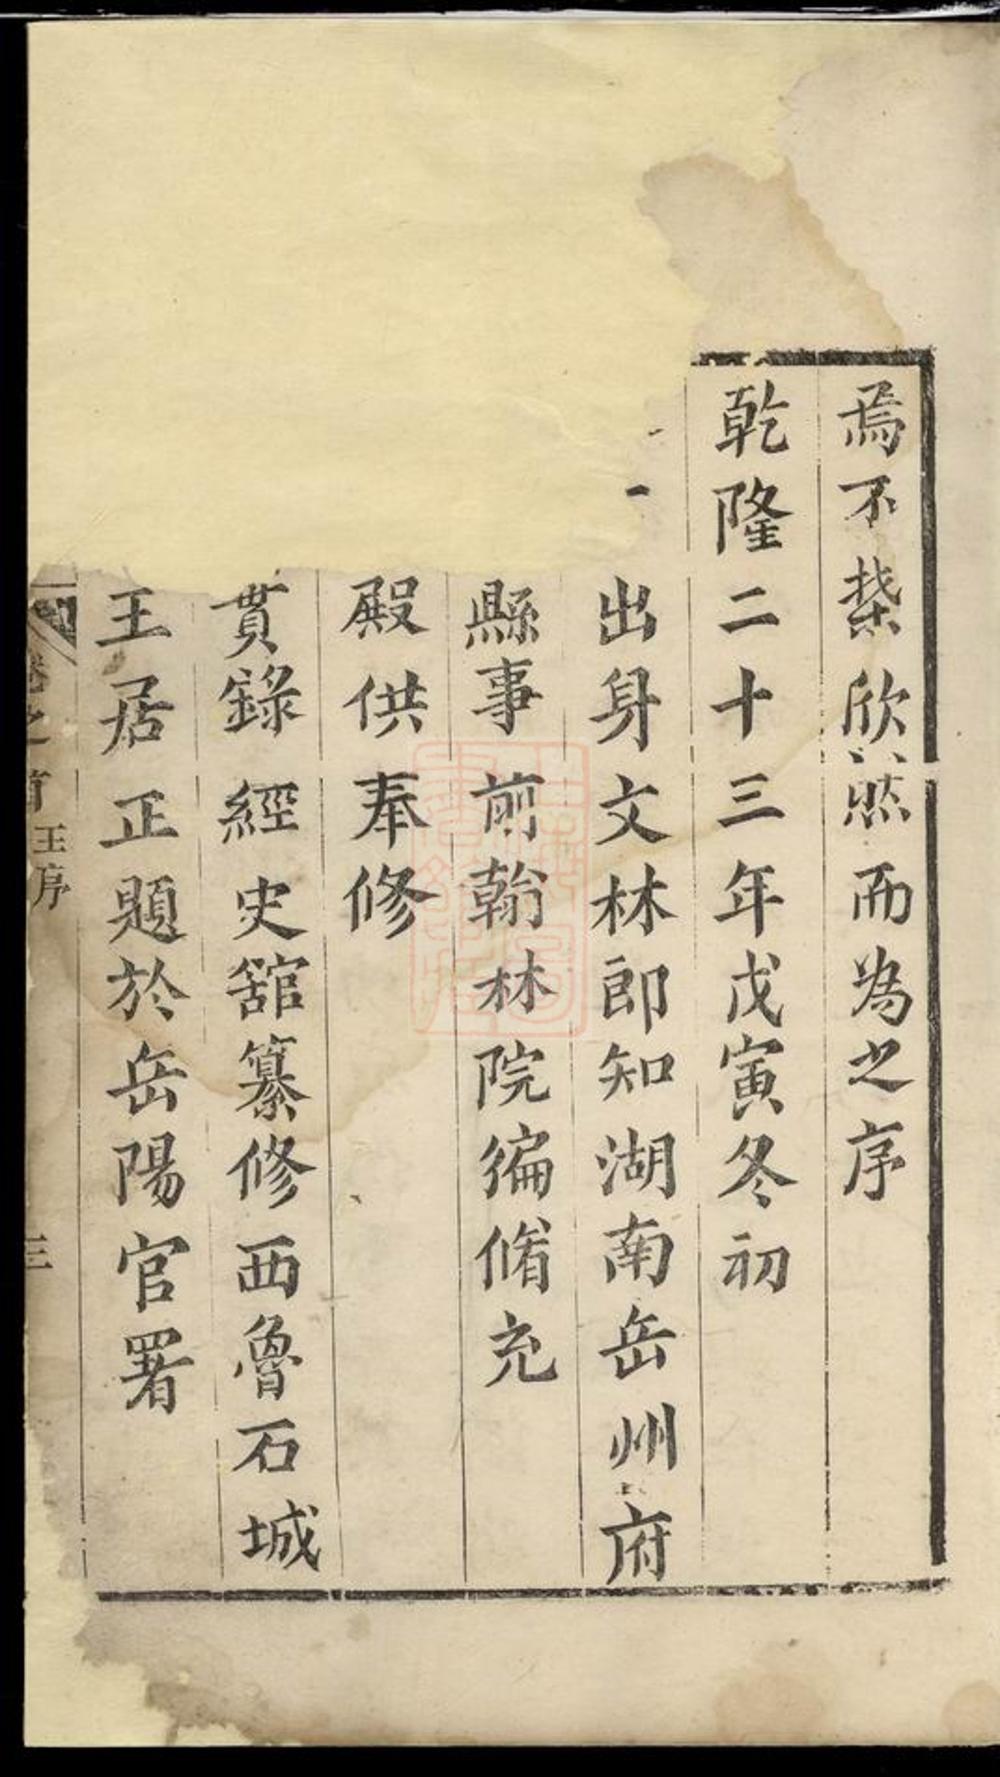 焉不禁欣然而為之序
乾隆二十三年戊寅冬初
出身文林郎知湖南岳州府
縣事前翰林院編脩充
殿供奉修
貫錄經史舘纂修西魯石城
王居正題於岳陽官署
卷之首 王序 三